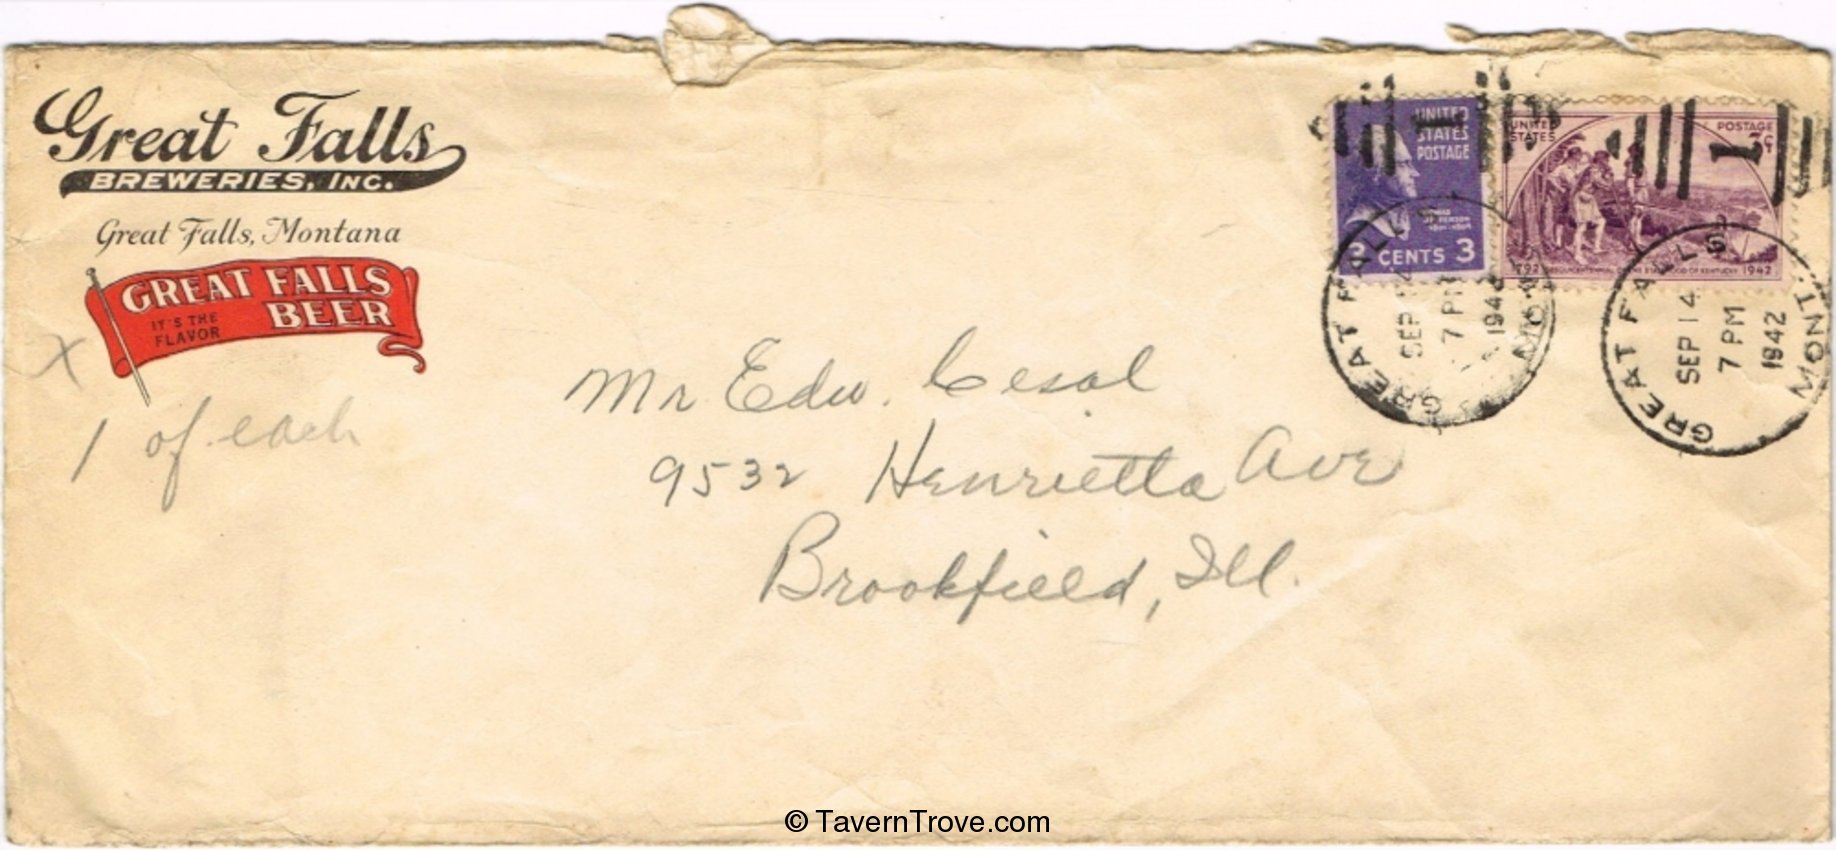 Great Falls
BREWERIES, INC.
Great Falls, Montana
GREAT FALLS
BEER
IT'S THE
FLAVOR
X
1 of each
Mr Edw. Cesal
9532 Henrietta Ave
Brookfield, Ill.
UNITED
STATES
POSTAGE
THOMAS
JEFFERSON
3 CENTS 3
UNITED
STATES
POSTAGE
3¢
1792 SESQUICENTENNIAL OF THE STATEHOOD OF KENTUCKY 1942
1
GREAT FALLS MONT.
SEP 14
7 PM
1942
GREAT FALLS MONT.
SEP 14
7 PM
1942
© TavernTrove.com